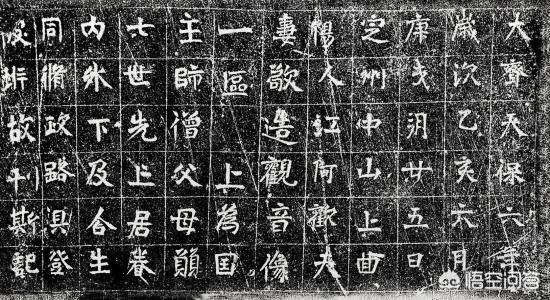 大齊天保六年
歲次乙亥六月
庚戌朔廿五日
定州中山上曲
楊人江阿歡夫
妻歌造觀音像
一區上為国
主師僧父母願
七世先亡居眷
内外下及合生
同脩政路具登
彼岸故刊斯記
悟空问答